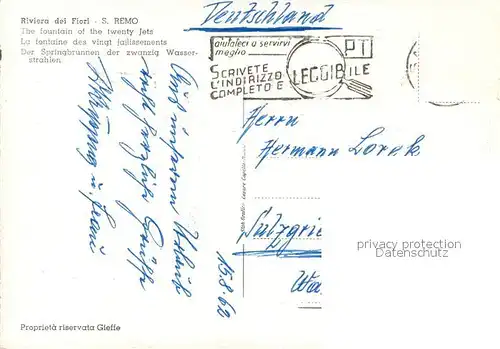 Riviera dei Fiori - S. REMO
The fountain of the twenty Jets
La fontaine des vingt jaillissements
Der Springbrunnen der zwanzig Wasser-
strahlen
Deutschland
aiutateci a servirvi
meglio
SCRIVETE
L'INDIRIZZO
COMPLETO E
LEGGIBILE
PT
Herrn
Hermann Lorek
Sulzgrie
Wa
Aus unserem Urlaub
recht herzliche Grüße
u. Frau
15.8.62
privacy protection
Datenschutz
Proprietà riservata Gieffe